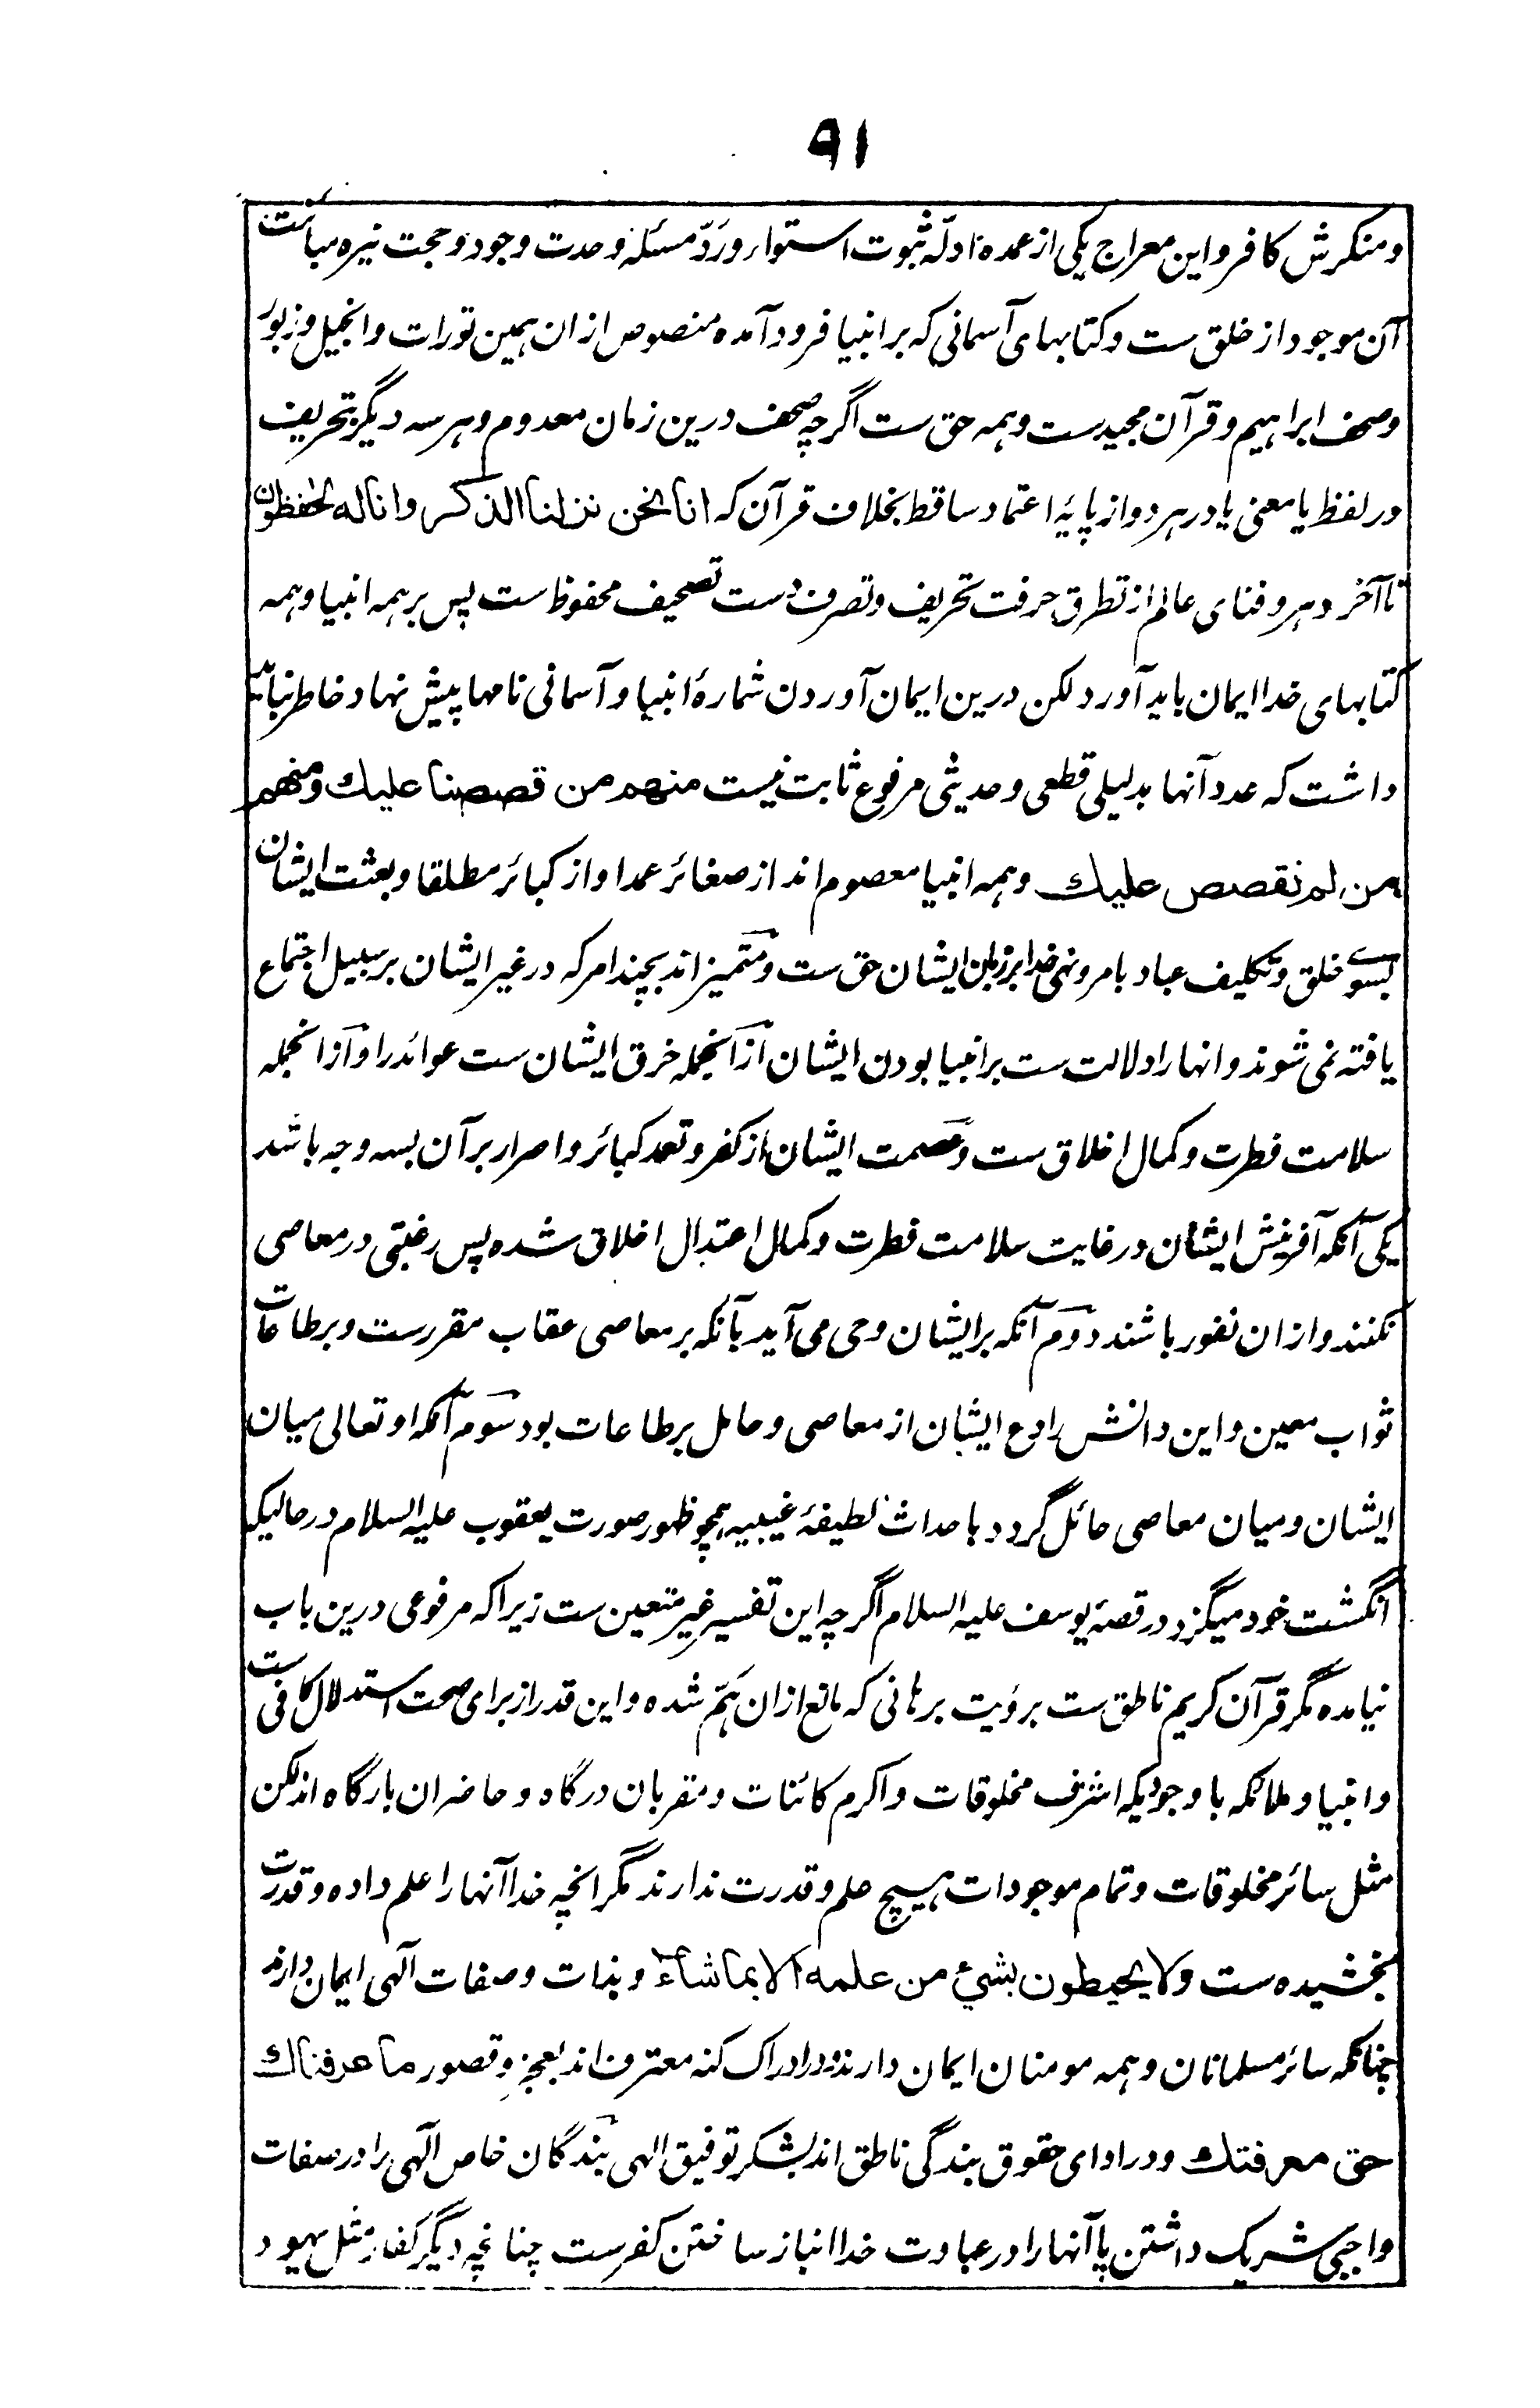 ۹۱
ومنکرش کافر و این معراج یکی از عمده ادلّهٔ ثبوت استواء و ردّ مسئله وحدت وجود و حجت نیره مباینت
آن موجود از خلق ست و کتابهای آسمانی که بر انبیا فرود آمده منصوص ازان همین تورات و انجیل و زبور
و صحف ابراهیم و قرآن مجیدست و همه حق ست اگرچه صحف درین زمان معدوم و هر سه دیگر بتحریف
در لفظ یا معنی یا در هر دو از پایهٔ اعتماد ساقط بخلاف قرآن که انا نحن نزلنا الذکر و انا له لحفظون
تا آخر دهر و فنای عالم از تطرق حرفت تحریف و تصرف دست تصحیف محفوظ ست پس بر همه انبیا و همه
کتابهای خدا ایمان باید آورد لکن درین ایمان آوردن شمارهٔ انبیا و آسمانی نامها پیش نهاد خاطر نباید
داشت که عدد آنها بدلیلی قطعی و حدیثی مرفوع ثابت نیست منهم من قصصنا علیك ومنهم
من لم نقصص علیك و همه انبیا معصوم اند از صغائر عمدا و از کبائر مطلقا و بعثت ایشان
بسوے خلق و تکلیف عباد بامر و نهی خدا بر زبان ایشان حق ست و متمیز اند بچند امر که در غیر ایشان بر سبیل اجتماع
یافته نمی شوند و انها را دلالت ست بر انبیا بودن ایشان ازانجمله خرق ایشان ست عوائد را و ازانجمله
سلامت فطرت و کمال اخلاق ست و عصمت ایشان از کفر و تعمد کبائر و اصرار بر آن بسه وجه باشد
یکی آنکه آفرینش ایشان در غایت سلامت فطرت و کمال اعتدال اخلاق شده پس رغبتی در معاصی
نکنند و ازان نفور باشند دوم آنکه بر ایشان وحی می آید بآنکه بر معاصی عقاب مقررست و بر طاعات
ثواب معین و این دانش رادع ایشان از معاصی و حامل بر طاعات بود سوم آنکه او تعالی میان
ایشان و میان معاصی حائل گردد باحداث لطیفهٔ غیبیه همچو ظهور صورت یعقوب علیه السلام در حالیکه
انگشت خود میگزد در قصهٔ یوسف علیه السلام اگرچه این تفسیر غیر متعین ست زیراکه مرفوعی درین باب
نیامده مگر قرآن کریم ناطق ست برؤیت برهانی که مانع ازان هَمّ شده و این قدر از برای صحت استدلال کافی ست
و انبیا و ملائکه باوجودیکه اشرف مخلوقات و اکرم کائنات و مقربان درگاه و حاضران بارگاه اند لکن
مثل سائر مخلوقات و تمام موجودات هیچ علم و قدرت ندارند مگر انچه خدا آنها را علم داده و قدرت
بخشیده ست ولا یحیطون بشئ من علمه الا بما شاء و بذات و صفات الهی ایمان دارند
چنانکه سائر مسلمانان و همه مومنان ایمان دارند و در ادراک کنه معترف اند بعجز و قصور ما عرفناك
حق معرفتك و در ادای حقوق بندگی ناطق اند بشکر توفیق الهی بندگان خاص الهی را در صفات
واجبی شریک داشتن یا آنها را در عبادت خدا انباز ساختن کفرست چنانچه دیگر کفار مثل یهود